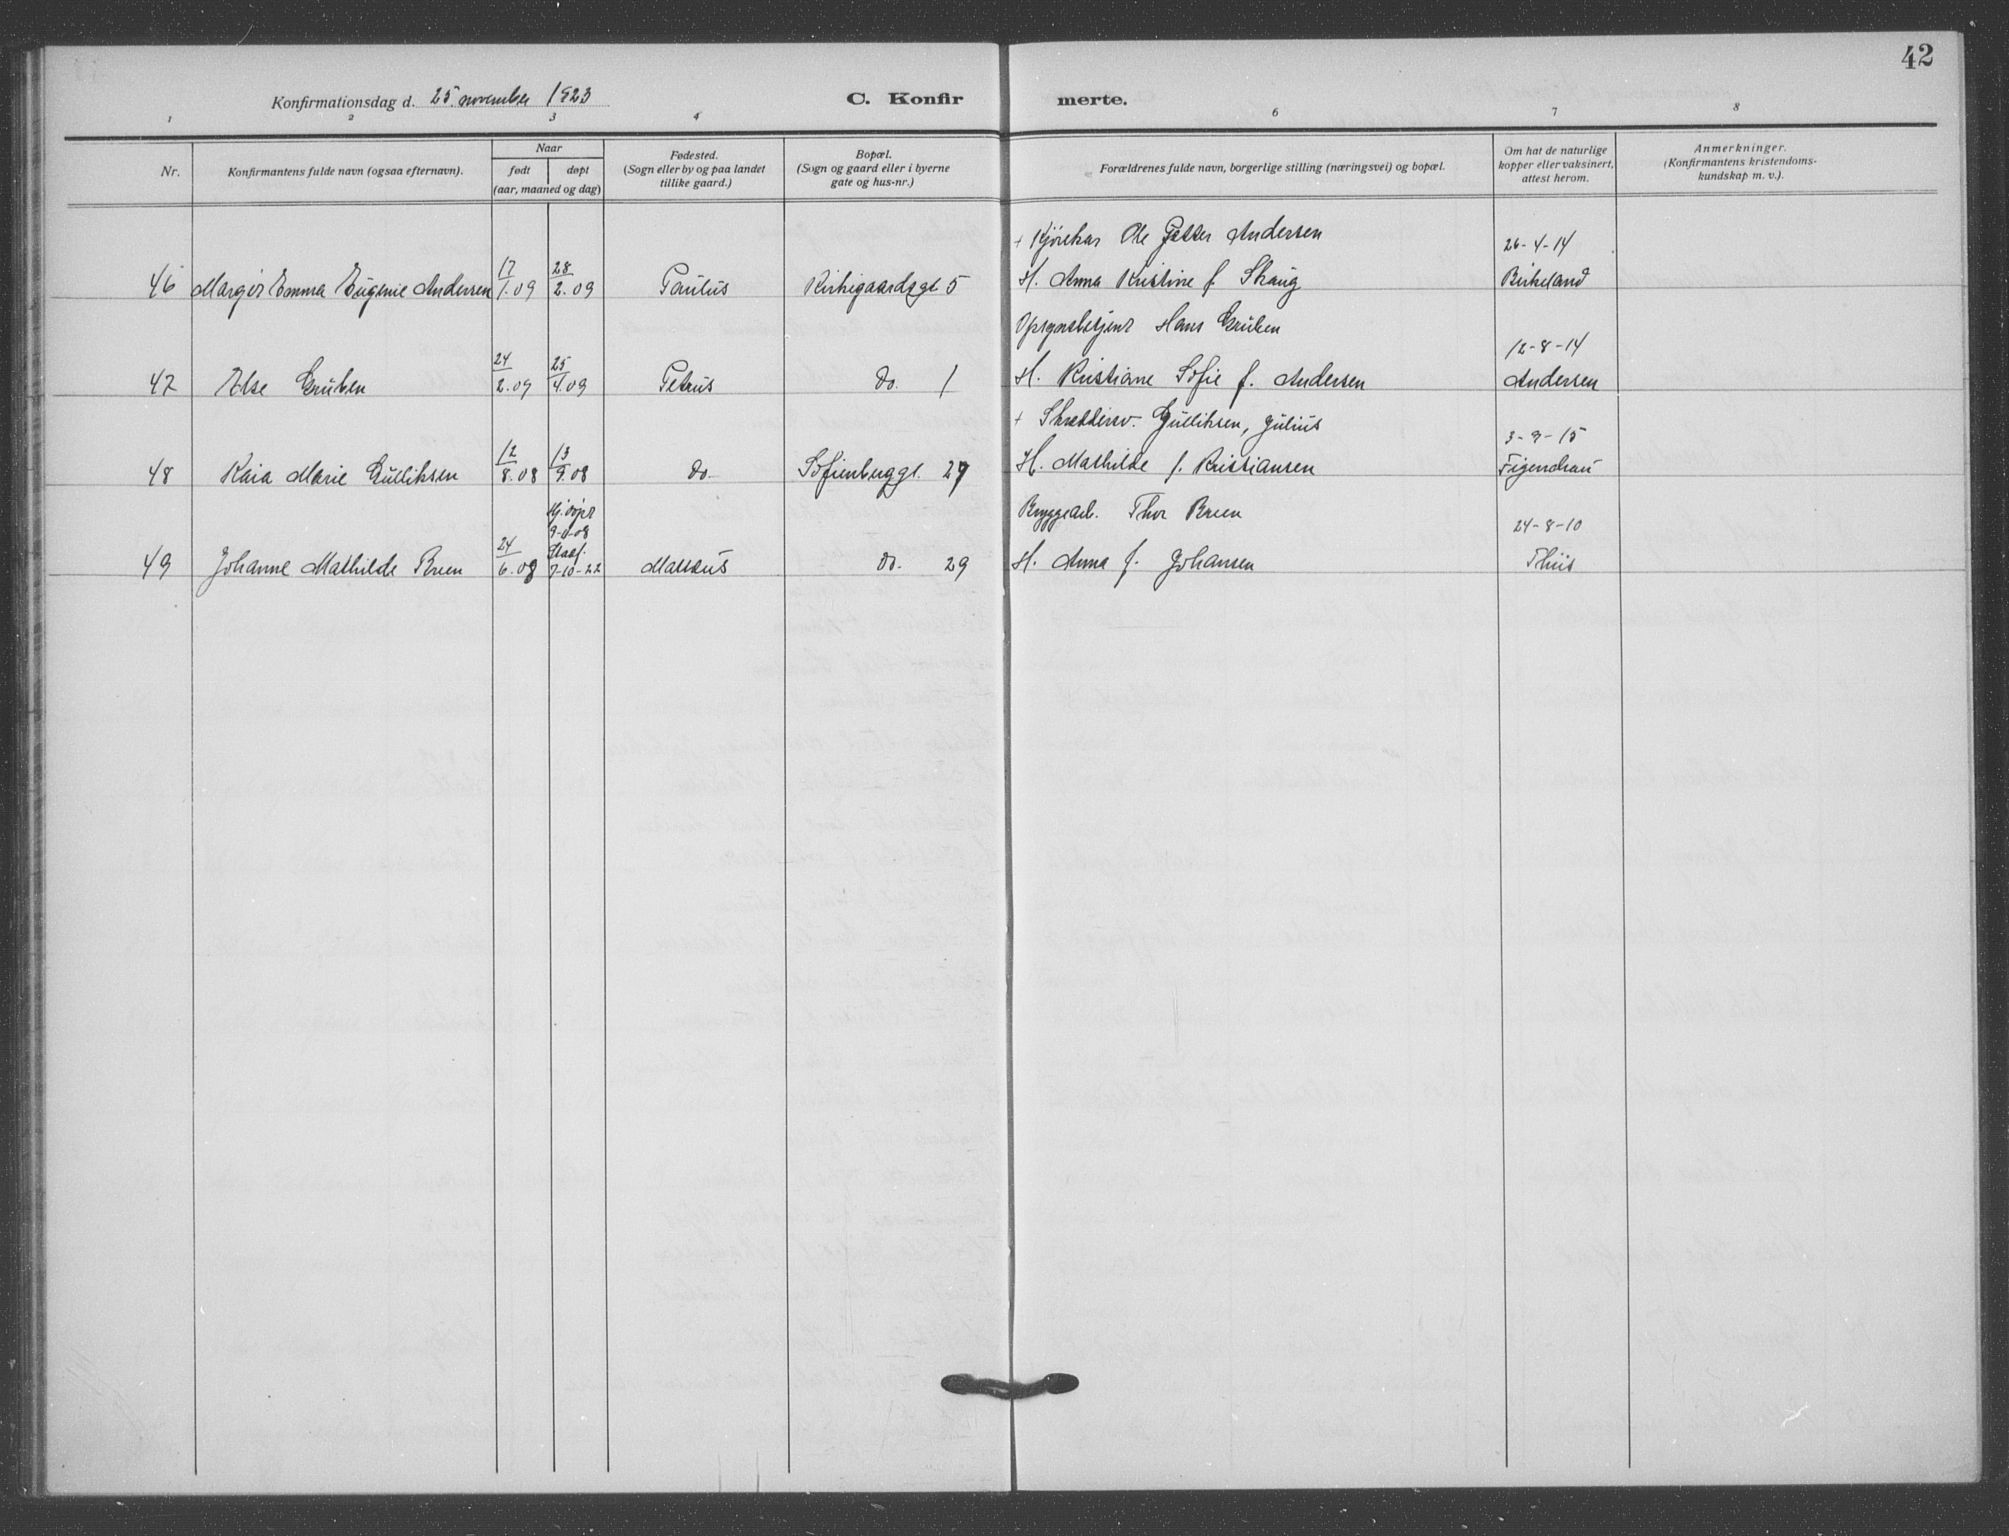 42
Konfirmationsdag d. 25. november 1923
C. Konfir merte.
1 2 3 4 6 7 8
Nr.
Konfirmantens fulde navn (ogsaa efternavn).
Naar
født døpt
(aar, maaned og dag)
Fødested.
(Sogn eller by og paa landet
tillike gaard.)
Bopæl.
(Sogn og gaard eller i byerne
gate og hus-nr.)
Forældrenes fulde navn, borgerlige stilling (næringsvei) og bopæl.
Om hat de naturlige
kopper eller vaksinert,
attest herom.
Anmerkninger.
(Konfirmantens kristendoms-
kundskap m. v.).
+ Kjørekar Ole Petter Andersen 26-4-14
46 Margit Emma Eugenie Andersen 17/1.09 28/2.09 Paulus Kirkegaardsgt 5 H. Anna Kristine f. Skaug Birkeland
Opsynsbetjent Hans Gruben 12-8-14
47 Else Gruben 24/2.09 25/4.09 Petrus do. 1 H. Kristiane Sofie f. Andersen Andersen
+ Skræddersv. Gulliksen, Julius 3-9-15
48 Kaia Marie Gulliksen 12/8.08 13/9.08 do. Sofienberggt. 27 H. Mathilde f. Kristiansen Figenchau
Hj. døpt
9-8-08
Stadf.
Bryggearb. Thor Breen 24-8-10
49 Johanne Mathilde Breen 24/6.08 7-10-22 Matteus do. 29 H. Anna f. Johansen Thiis